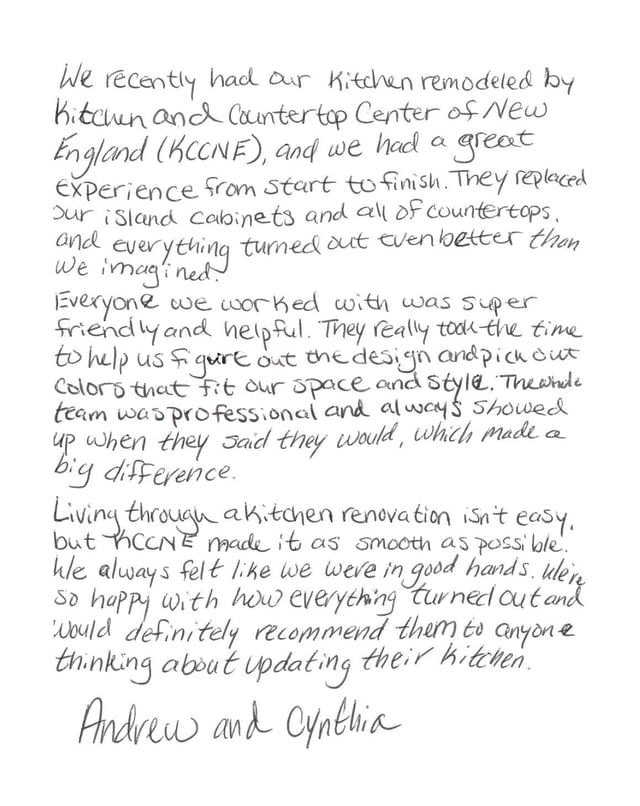 We recently had our kitchen remodeled by
Kitchen and Countertop Center of New
England (KCCNE), and we had a great
experience from start to finish. They replaced
our island cabinets and all of countertops,
and everything turned out even better than
we imagined.
Everyone we worked with was super
friendly and helpful. They really took the time
to help us figure out the design and pick out
colors that fit our space and style. The whole
team was professional and always showed
up when they said they would, which made a
big difference.
Living through a kitchen renovation isn't easy,
but KCCNE made it as smooth as possible.
We always felt like we were in good hands. We're
so happy with how everything turned out and
would definitely recommend them to anyone
thinking about updating their kitchen.
Andrew and Cynthia